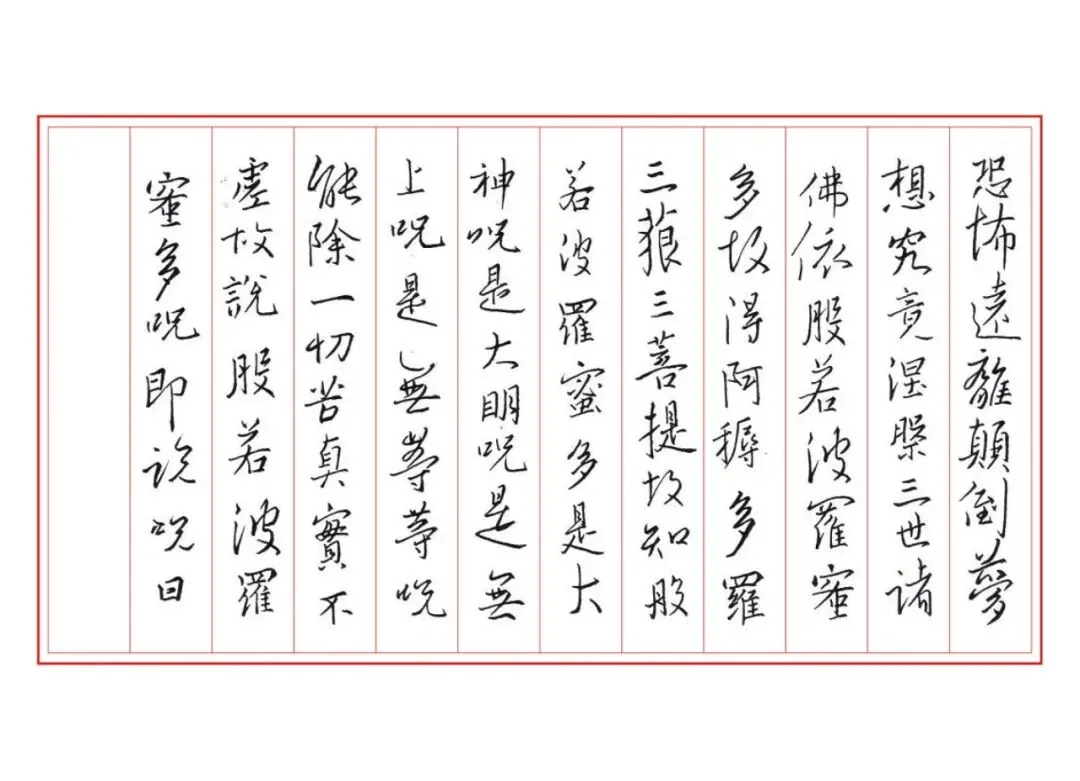 恐怖遠離顛倒夢
想究竟涅槃三世諸
佛依般若波羅蜜
多故得阿耨多羅
三藐三菩提故知般
若波羅蜜多是大
神呪是大明呪是無
上呪是無等等呪
能除一切苦真實不
虛故說般若波羅
蜜多呪即說呪曰